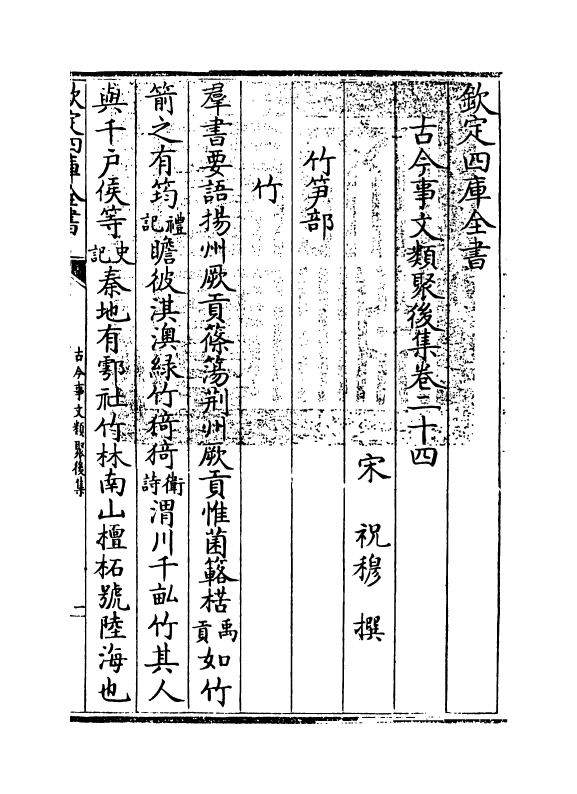 欽定四庫全書
古今事文類聚後集卷二十四
宋 祝穆 撰
竹笋部
竹
羣書要語揚州厥貢篠簜荆州厥貢惟菌簵楛禹貢如竹
箭之有筠禮記瞻彼淇澳緑竹猗猗衛詩渭川千畝竹其人
與千戶侯等史記秦地有鄠社竹林南山檀柘號陸海也
欽定四庫全書
古今事文類聚後集